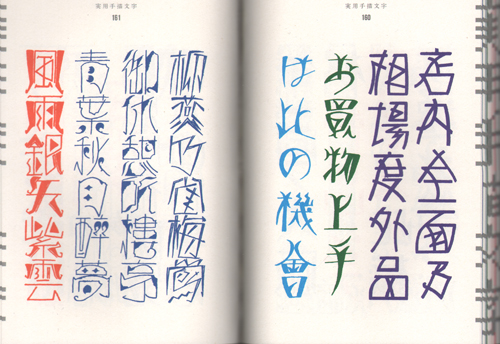 実用手描文字
160
店内全面乃
相場度外品
お買物上手
は此の機會
実用手描文字
161
柳燕竹雀梅鶯
御休憩所樓亭
青葉秋月酔夢
風雨銀矢紫雲